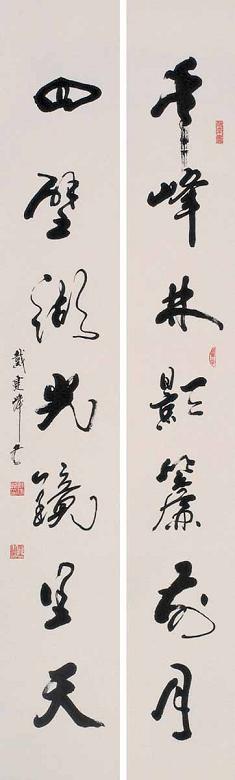 千峰林影簾前月
四壁湖光鏡里天
戴建峰書